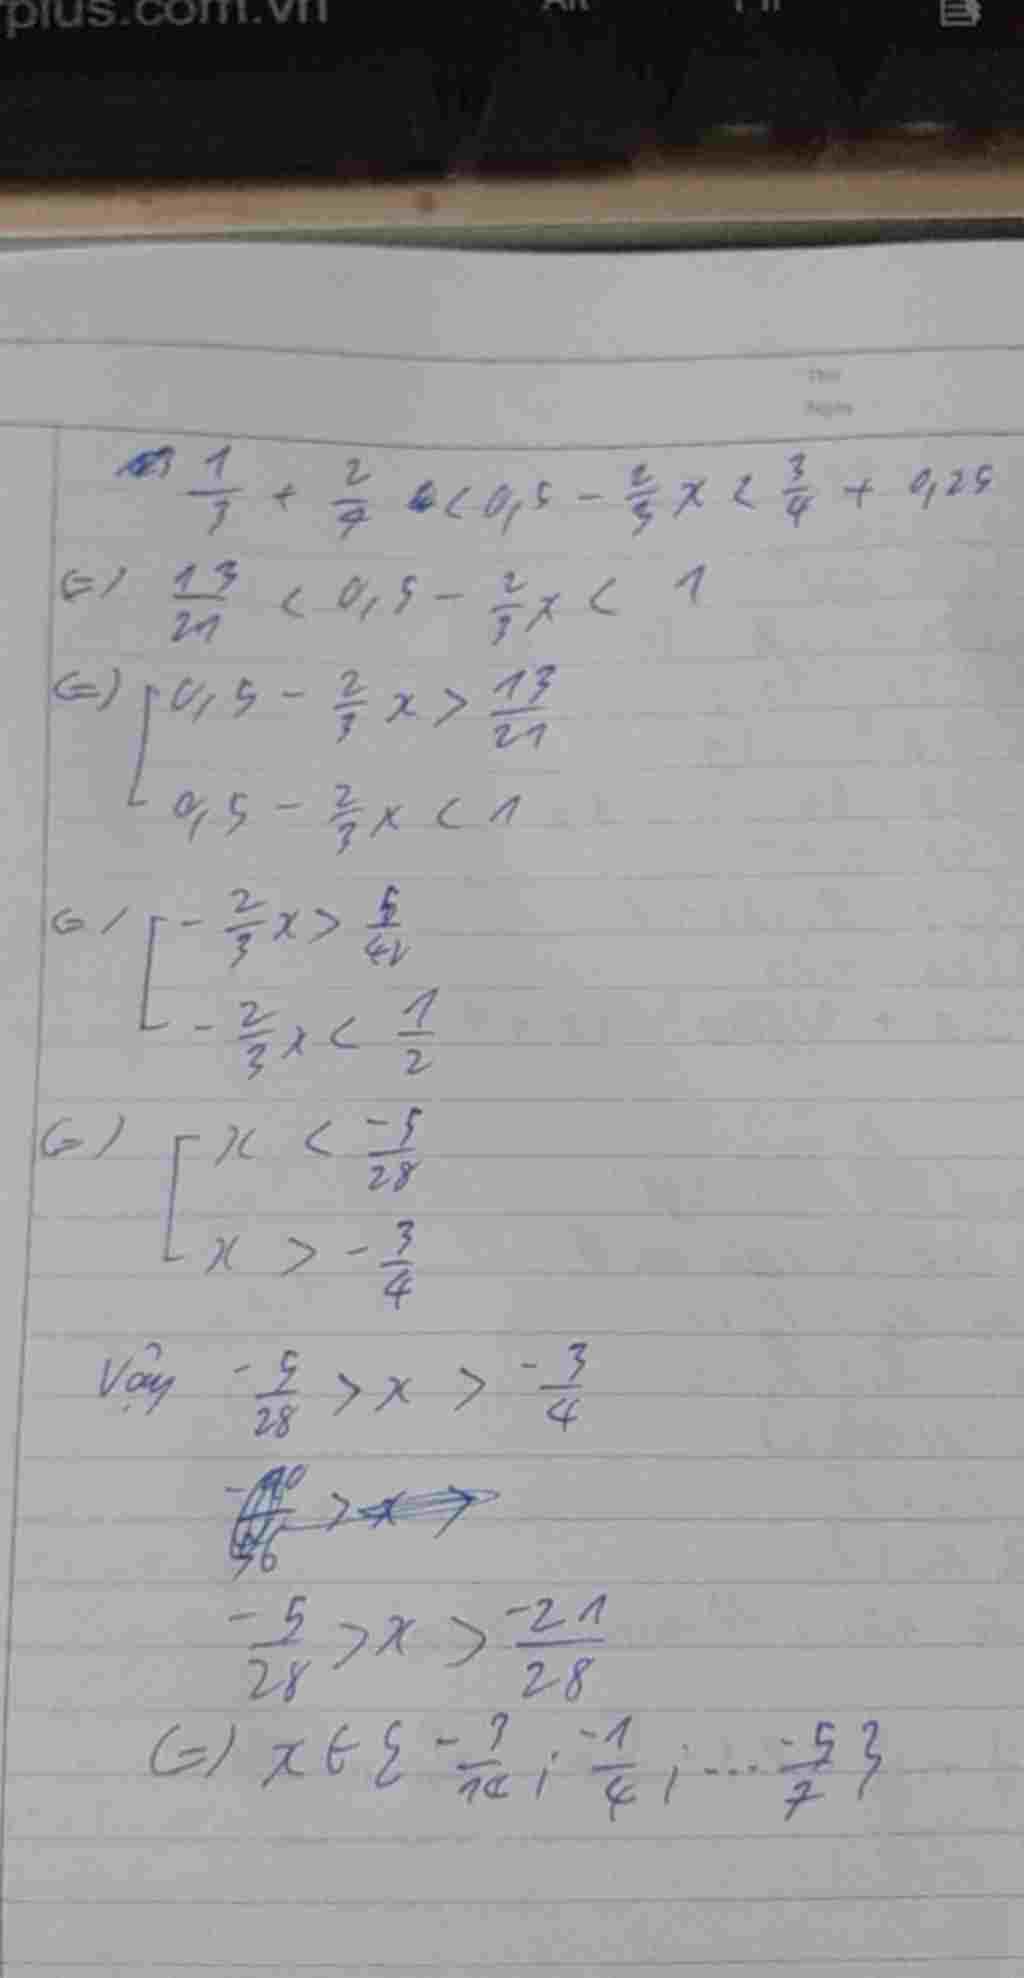 plus.com.vn
Thứ
Ngày
1/3 + 2/7 < 0,5 - 2/3 x < 3/4 + 0,25
(=) 13/21 < 0,5 - 2/3 x < 1
(=) [ 0,5 - 2/3 x > 13/21
0,5 - 2/3 x < 1
(=) [ - 2/3 x > 5/42
- 2/3 x < 1/2
(=) [ x < -5/28
x > - 3/4
Vậy - 5/28 > x > - 3/4
-5/28 > x > -21/28
(=) x ∈ { - 3/14 ; -1/4 ; ... -5/7 }